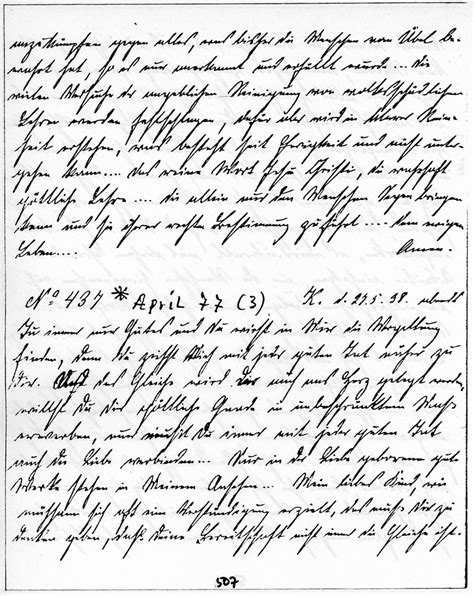 anzukämpfen gegen alles, was bisher die Menschen vom Übel be-
wahrt hat, so es nur anerkannt und erfüllt wurde ... Die
vielen Versuche der angeblichen Reinigung von volksschädlichen
Lehren werden fehlschlagen, dafür aber wird in klarer Rein-
heit erstehen, was besteht seit Ewigkeit und nicht unter-
gehen kann .... Das reine Wort Jesu Christi, die wahrhaft
göttliche Lehre .... die allein nur den Menschen Segen bringen
kann und sie ihrer rechten Bestimmung zuführt .... dem ewigen
Leben .... Amen.
No 437 * April 77 (3) K. d. 27.5.38. abends
Tu immer nur Gutes und du wirst in Mir die Vergeltung
finden, denn du ziehst Mich mit jeder guten Tat näher zu
dir. Und das Gleiche wird dir auch ans Herz gelegt werden,
willst du dir göttliche Gnade in unbeschränktem Maß
erwerben, nur mußt du immer mit jeder guten Tat
auch die Liebe verbinden ... Nur in der Liebe geborene gute
Werke stehen in Meinem Ansehen ... Mein liebes Kind, wie
mühsam sich oft eine Verständigung erzielt, das muß dir zu
denken geben, daß deine Bereitschaft nicht immer die Gleiche ist.
507